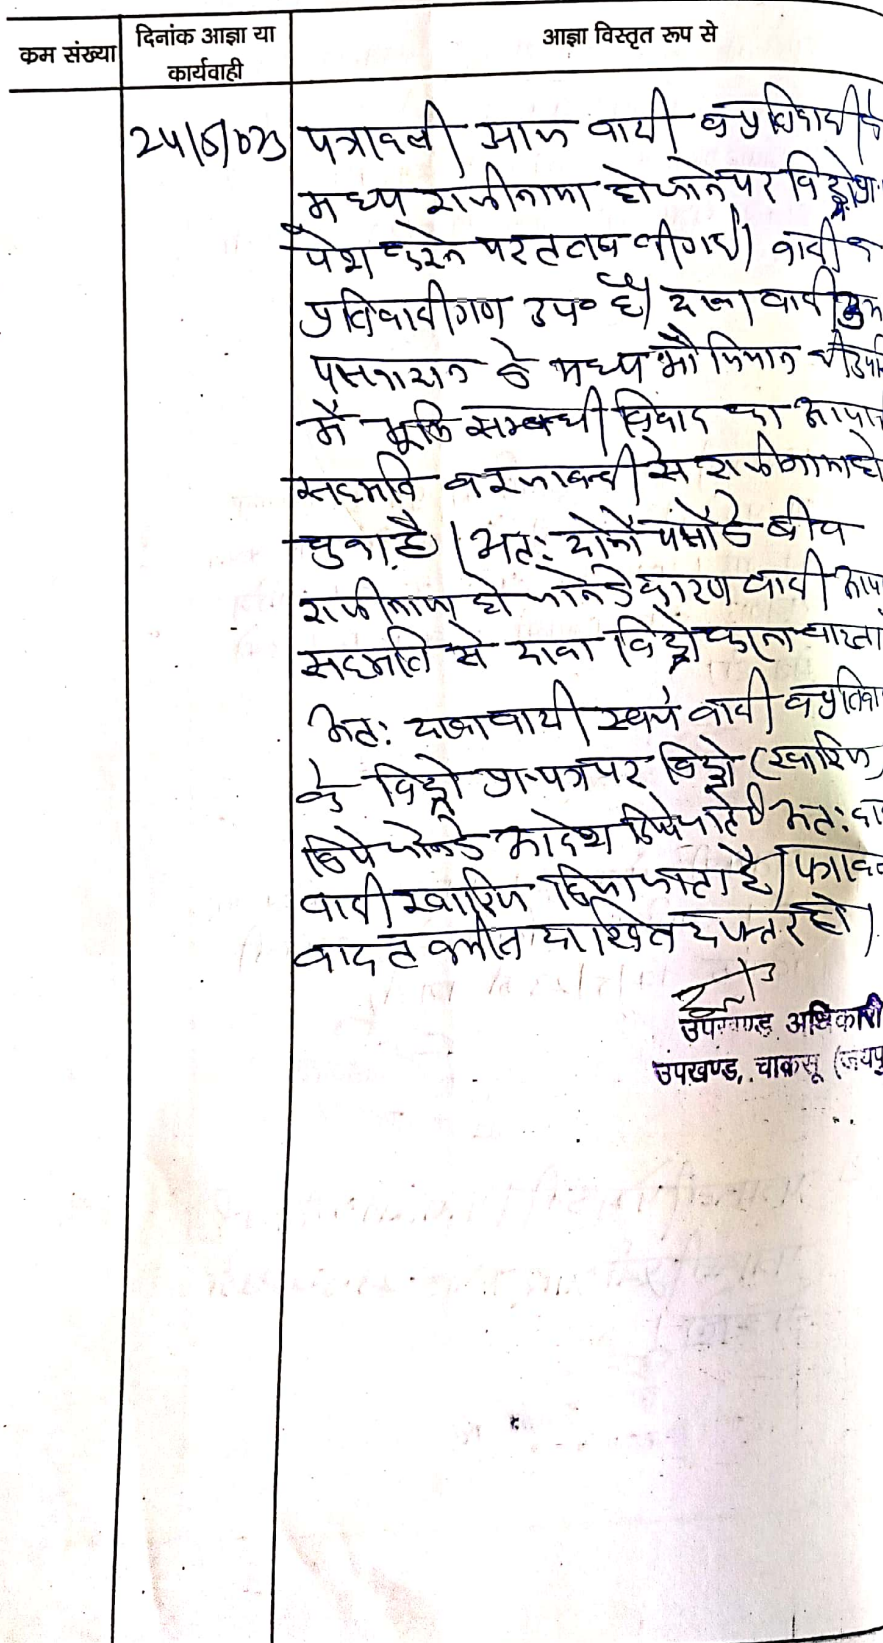 कम संख्या
दिनांक आज्ञा या
कार्यवाही
आज्ञा विस्तृत रूप से
पत्रावली आज वादी व प्रतिवादी के
मध्य राजीनामा होजाने पर विड्रो
पेश करने पर तलब की गई। वादी व
प्रतिवादीगण उप० है। दावा वादी
के मध्य
में भूमि सम्बन्धी विवाद का आपसी
सहमति व रजाबन्दी से राजीनामा हो
चुका है। अतः दोनों पक्षों के बीच
राजीनामा हो जाने के कारण वादी आप
सहमति से दावा विड्रो करना चाहता
अतः दावा वादी स्वयं वादी व प्रतिवा
के विड्रो प्रा-पत्र पर विड्रो (खारिज)
किये जाने के आदेश दिये जाते है अतः दा
वादी खारिज किया जाता है। फाईल
बाद तकमील दाखिल दफ्तर हो।
उपखण्ड अधिकारी
उपखण्ड, चाकसू (जयपु